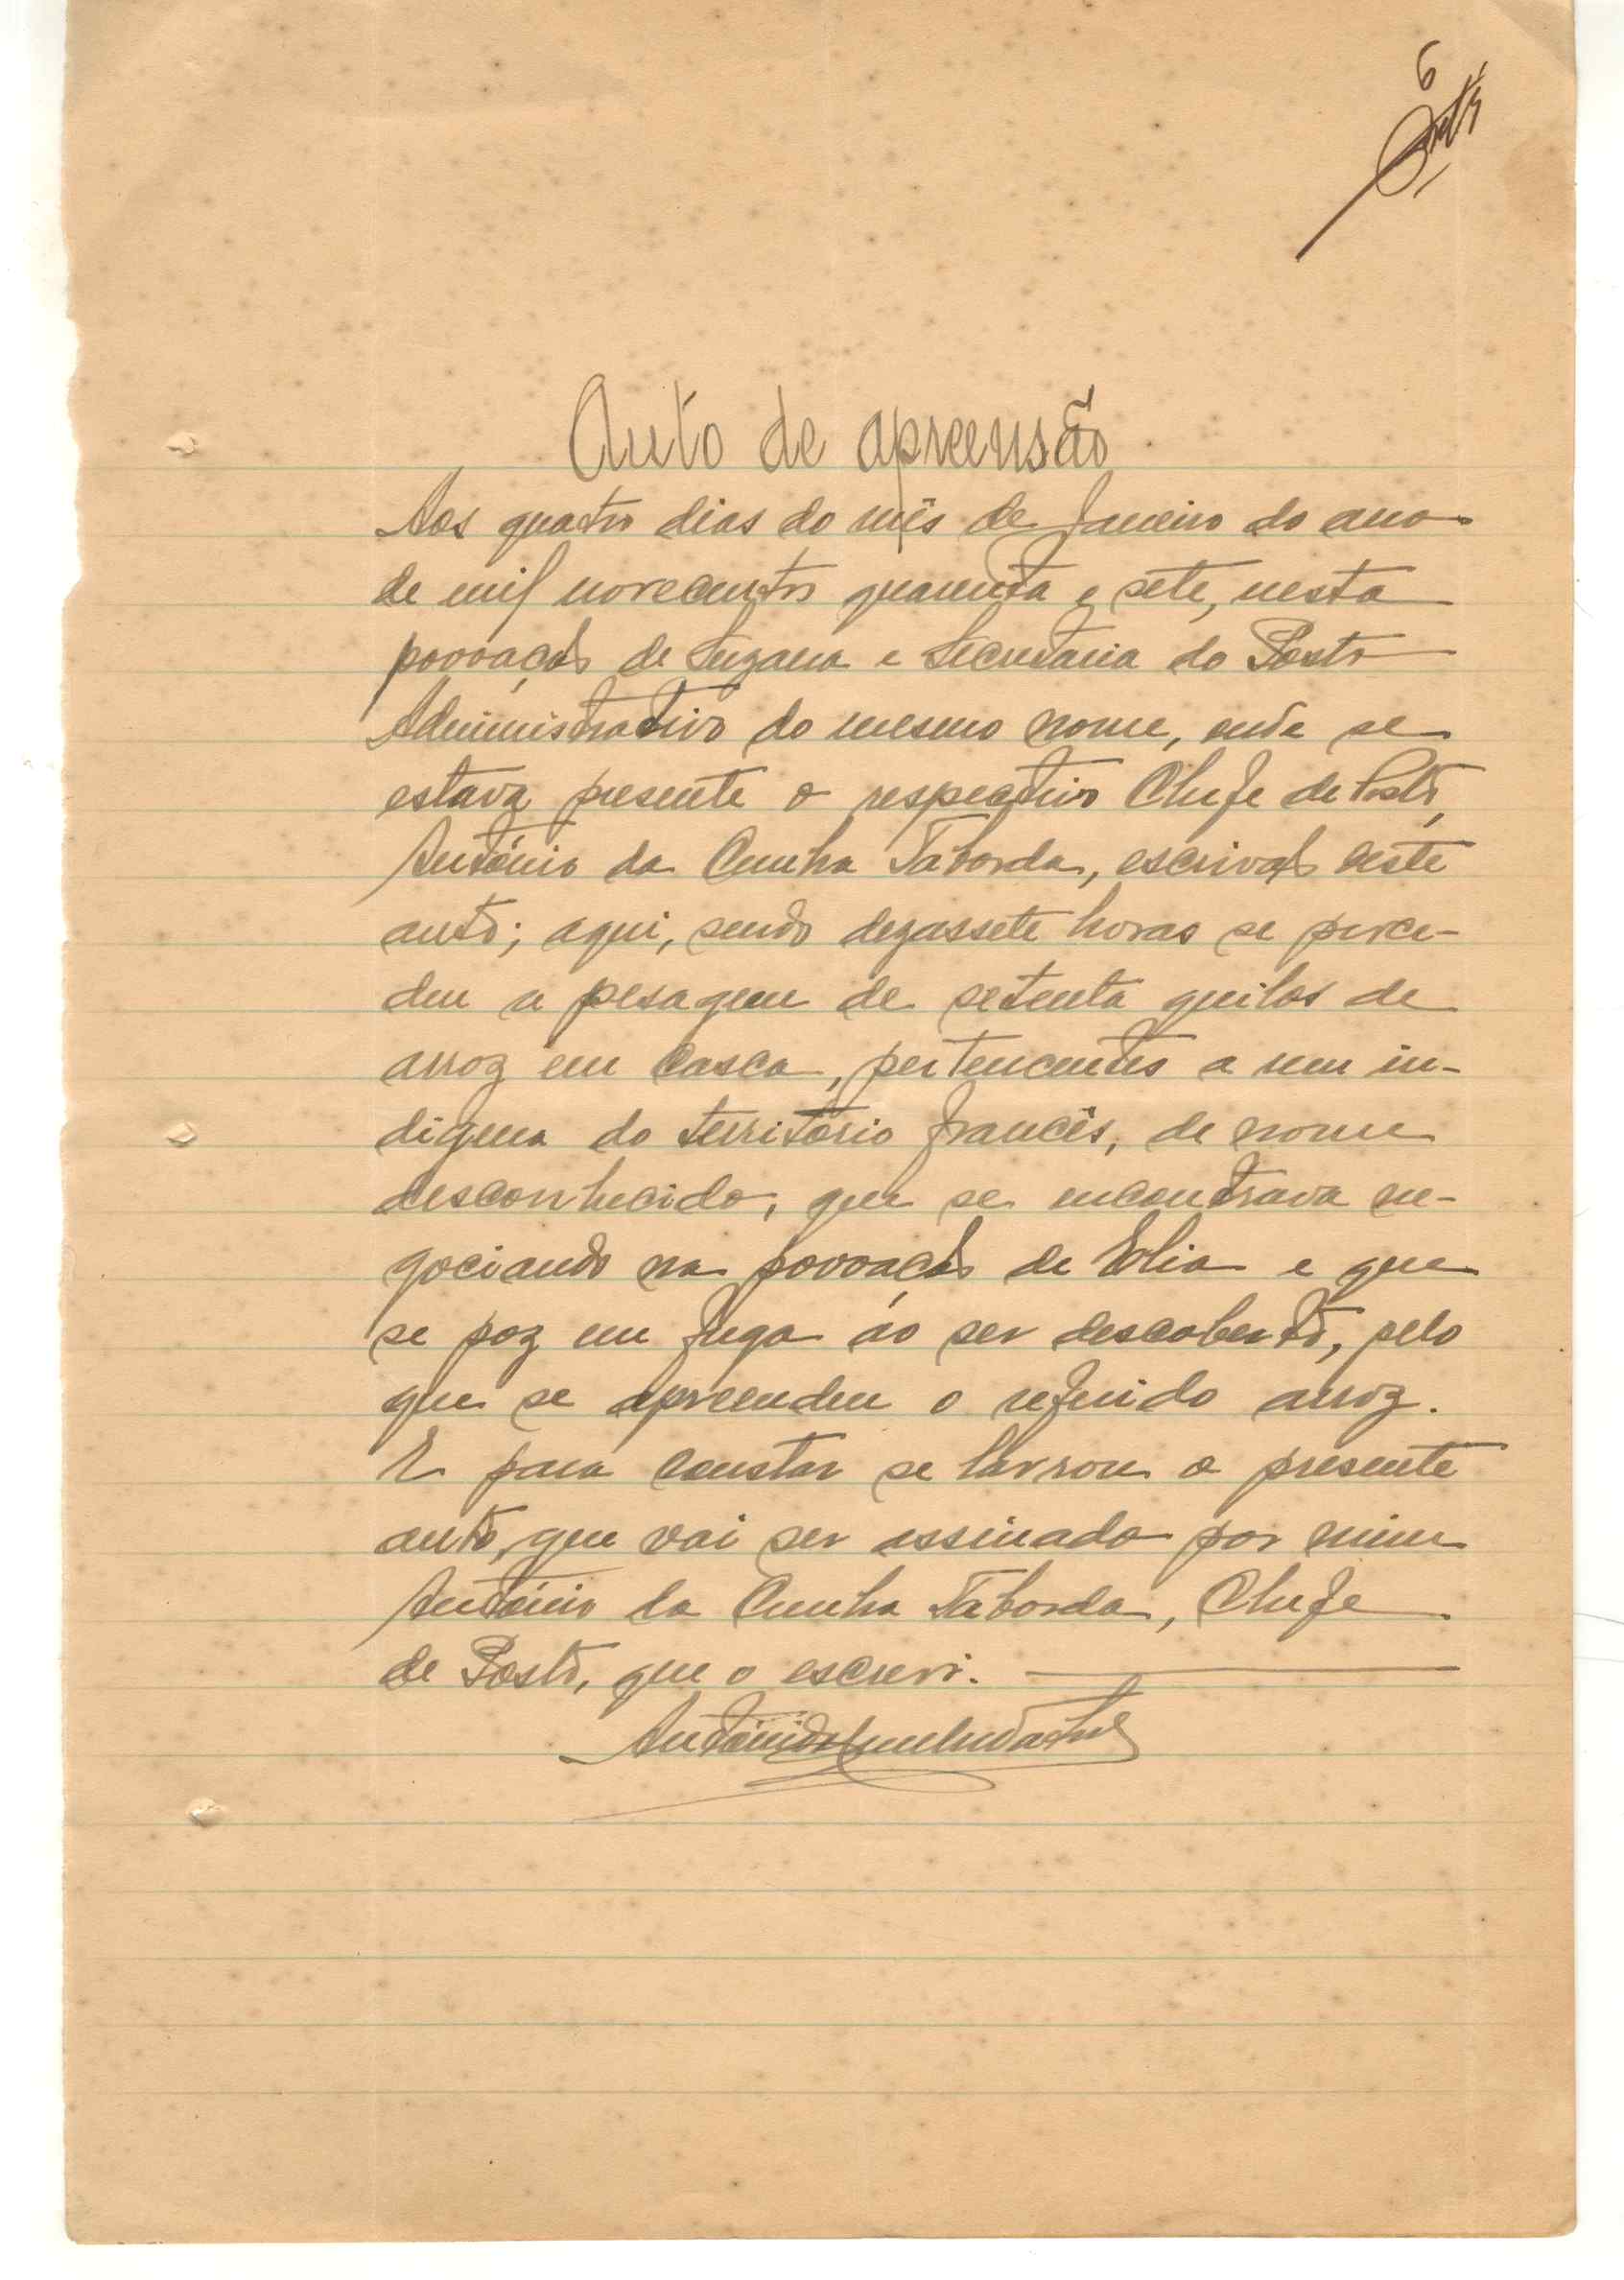 6
Auto de apreensão
Aos quatro dias do mês de Janeiro do ano
de mil novecentos quarenta e sete, nesta
povoação de Suzana e Secretaria do Posto
Administrativo do mesmo nome, onde se
estava presente o respectivo Chefe de Posto,
António da Cunha Taborda, escrivão deste
auto; aqui, sendo dezassete horas se proce-
deu a pesagem de setenta quilos de
arroz em casca, pertencentes a um in-
digena do território francês, de nome
desconhecido, que se encontrava ne-
gociando na povoação de Elia e que
se poz em fuga áo ser descoberto, pelo
que se apreendeu o referido arroz.
E para constar se lavrou o presente
auto, que vai ser assinado por mim
António da Cunha Taborda, Chefe
de Posto, que o escrevi.
António da Cunha Taborda